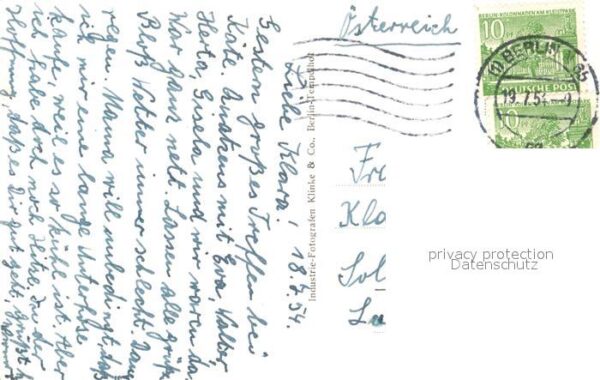 Österreich
BERLIN-KOLONNADEN AM KLEISTPARK
10
BERLIN
19.7.54
DEUTSCHE POST
10
Liebe Klara! 18.7.54.
Gestern großes Treffen bei
Käte Andrens mit Eva, Volker,
Herta, Gisela und wir waren da.
War ganz nett. Lassen alle grüßen
Bloß Wetter immer schlecht. Dauer
regen. Mama will unbedingt, daß
ich mir eine lange Unterhose
kaufe, weil es so kühle ist. Aber
ich habe doch noch Hitze. In der
Hoffnung, daß es Dir gut geht, grüßt
Industrie-Fotografen Klinke & Co., Berlin-Tempelhof
Fre
Klo
Sol
privacy protection
Datenschutz